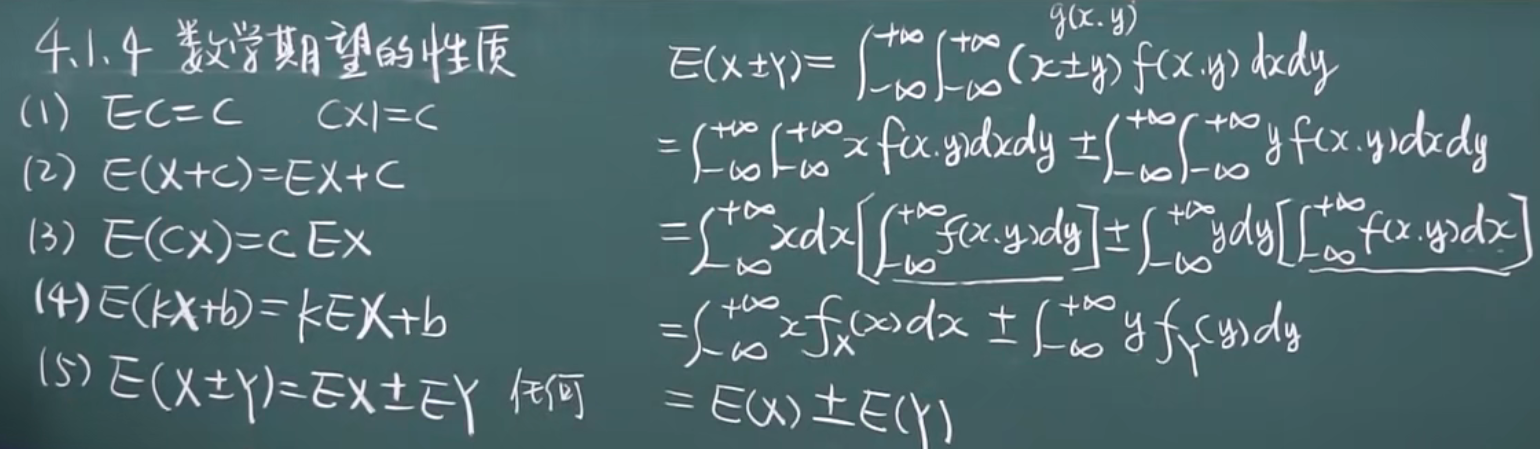 4.1.4 数学期望的性质
(1) EC=C C×1=C
(2) E(X+C)=EX+C
(3) E(CX)=CEX
(4) E(kX+b)=kEX+b
(5) E(X±Y)=EX±EY 任何
g(x.y)
E(X±Y)=∫_{-∞}^{+∞}∫_{-∞}^{+∞}(x±y)f(x.y)dxdy
=∫_{-∞}^{+∞}∫_{-∞}^{+∞}xf(x.y)dxdy±∫_{-∞}^{+∞}∫_{-∞}^{+∞}yf(x.y)dxdy
=∫_{-∞}^{+∞}xdx[∫_{-∞}^{+∞}f(x.y)dy]±∫_{-∞}^{+∞}ydy[∫_{-∞}^{+∞}f(x.y)dx]
=∫_{-∞}^{+∞}xf_X(x)dx±∫_{-∞}^{+∞}yf_Y(y)dy
=E(X)±E(Y)